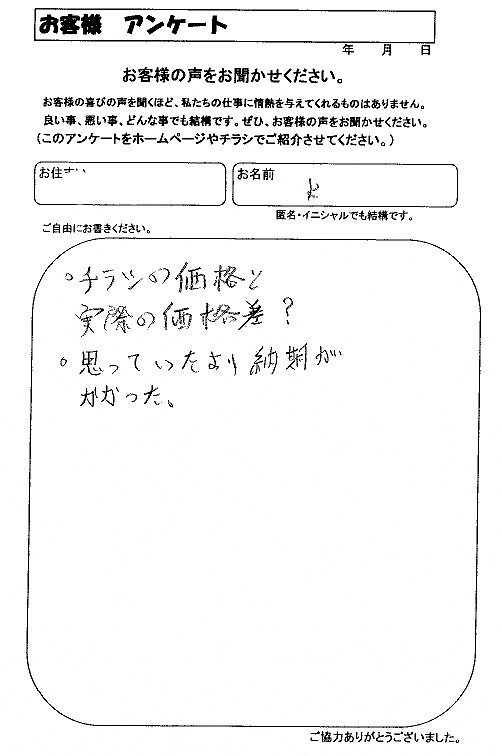 お客様 アンケート
年 月 日
お客様の声をお聞かせください。
お客様の喜びの声を聞くほど、私たちの仕事に情熱を与えてくれるものはありません。
良い事、悪い事、どんな事でも結構です。ぜひ、お客様の声をお聞かせください。
(このアンケートをホームページやチラシでご紹介させてください。)
お住
お名前
匿名・イニシャルでも結構です。
ご自由にお書きください。
。チラシの価格と
実際の価格差?
。思っていたより納期が
かかった。
ご協力ありがとうございました。